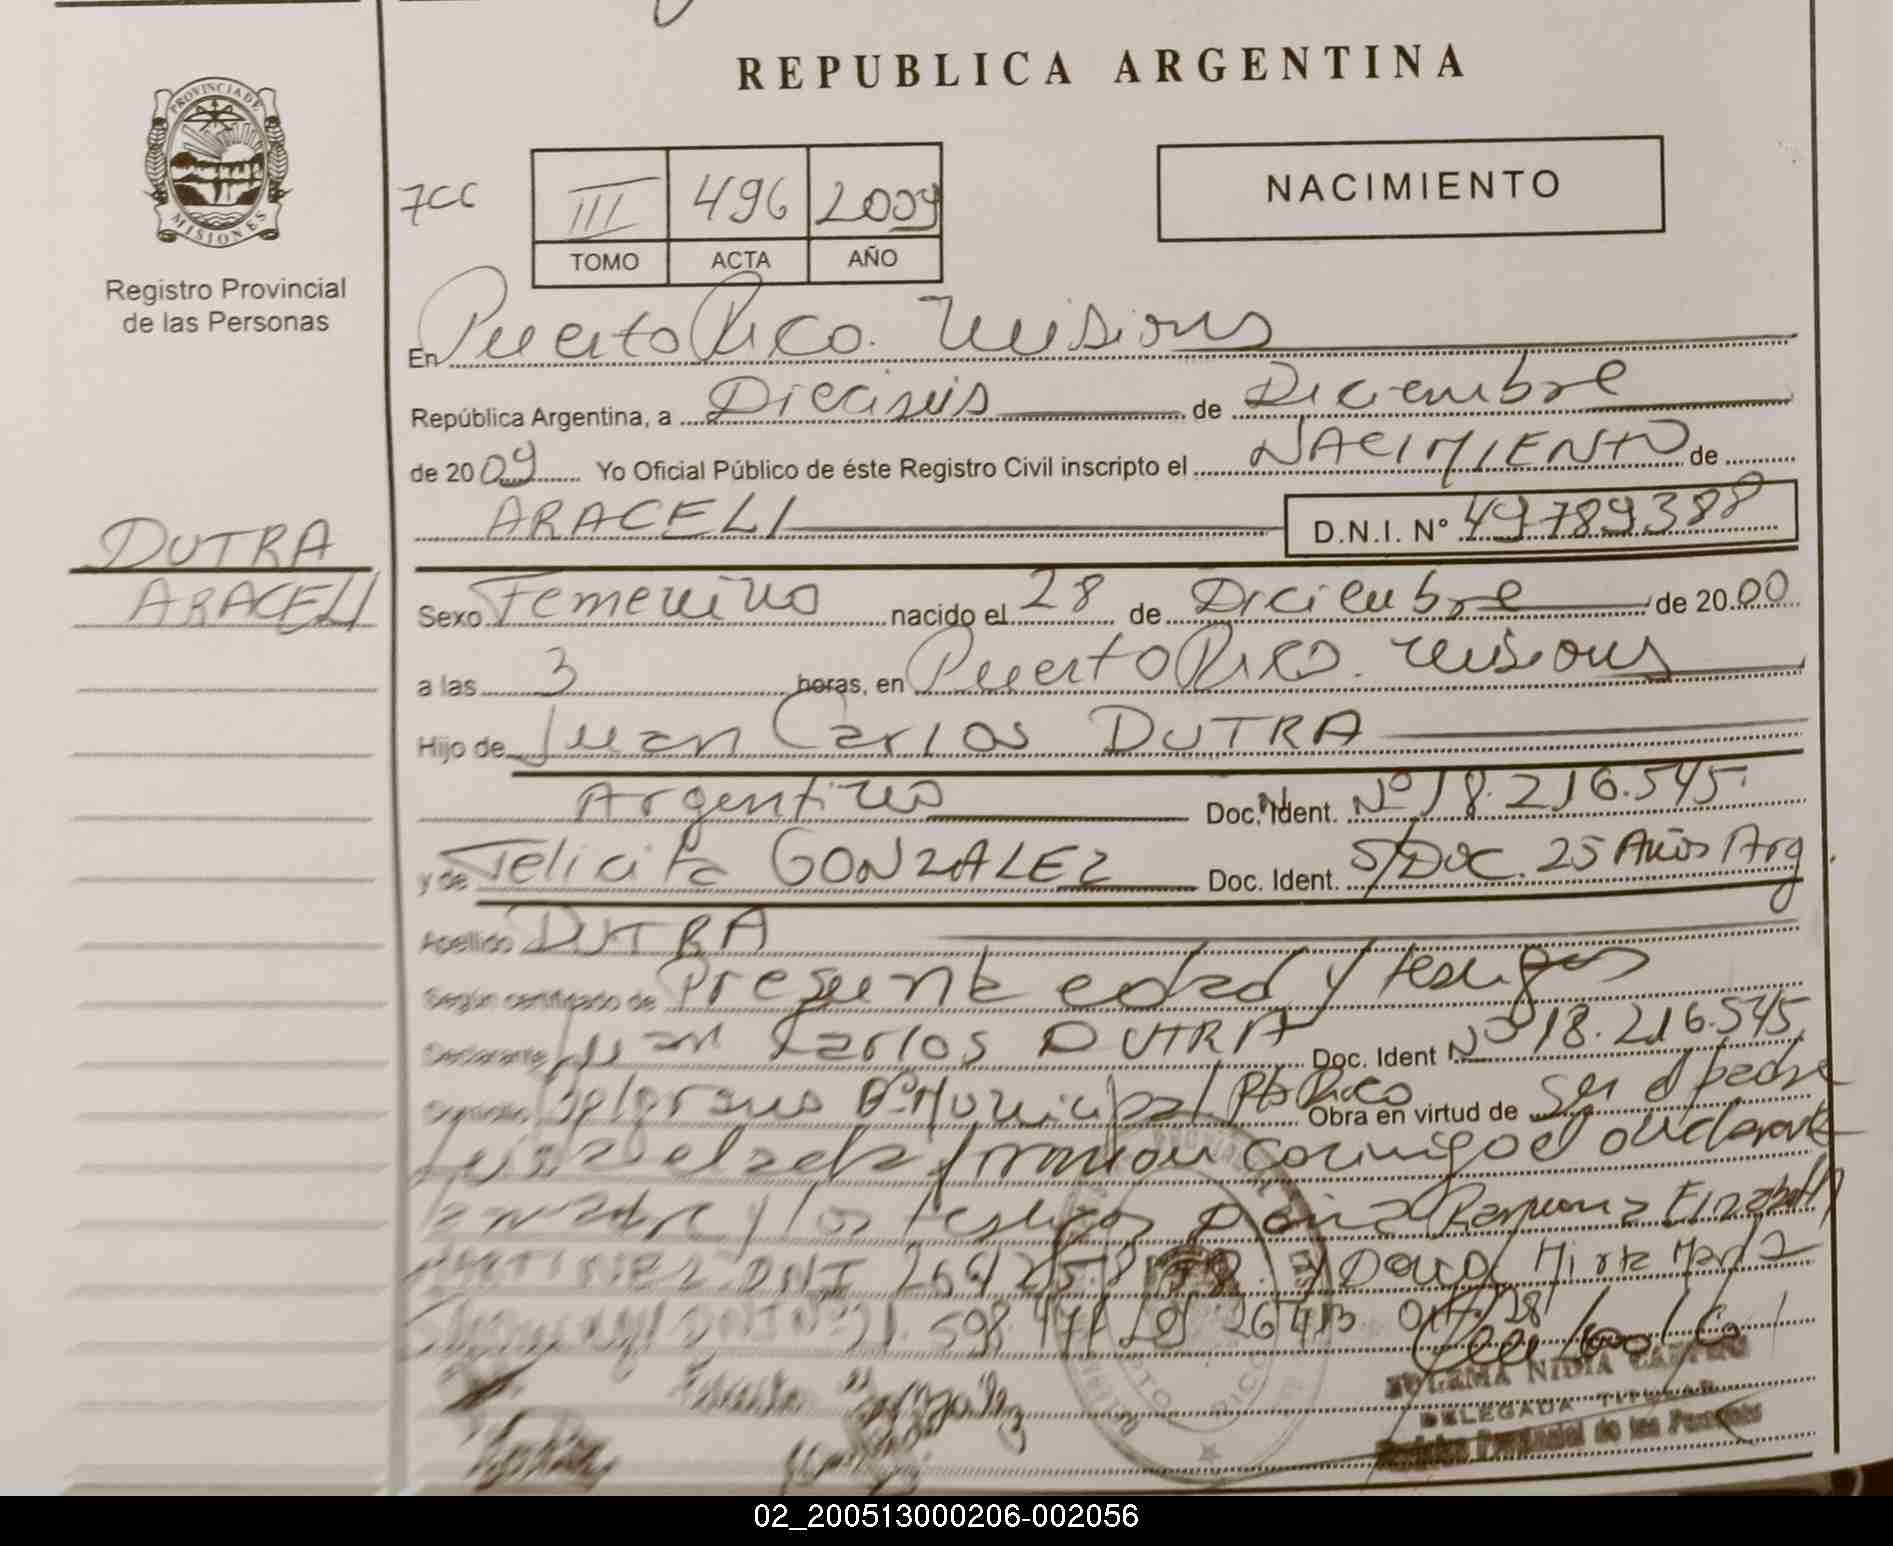 REPUBLICA ARGENTINA
PROVINCIA DE
MISIONES
Registro Provincial
de las Personas
7CC
III 496 2009
TOMO ACTA AÑO
NACIMIENTO
En Puerto Rico. Misiones
República Argentina, a Dieciseis de Diciembre
de 2009 Yo Oficial Público de éste Registro Civil inscripto el NACIMIENTO de
ARACELI D.N.I. Nº 49789388
DUTRA
ARACELI
Sexo Femenino nacido el 28 de Diciembre de 2000
a las 3 horas, en Puerto Rico. Misiones
Hijo de Juan Carlos DUTRA
Argentino Doc. Ident. Nº 18.216.545.
y de Felicita GONZALEZ Doc. Ident. S/Doc. 25 Años Arg
Apellido DUTRA
Según certificado de Presunta edad y testigos
Declarante Juan Carlos DUTRA Doc. Ident Nº 18.216.545
Domicilio Belgrano Bº Municipal Pto Rico Obra en virtud de ser el padre
el acta firman conmigo el declarante
la madre y los testigos Doña Ramona Elizabeth
MARTINEZ DNI y Doña Mirta
DNI Nº 21.598.471 Ley 26413 Art. 28
ZULEMA NIDIA
DELEGADA TITULAR
Registro Provincial de las Personas
02_200513000206-002056